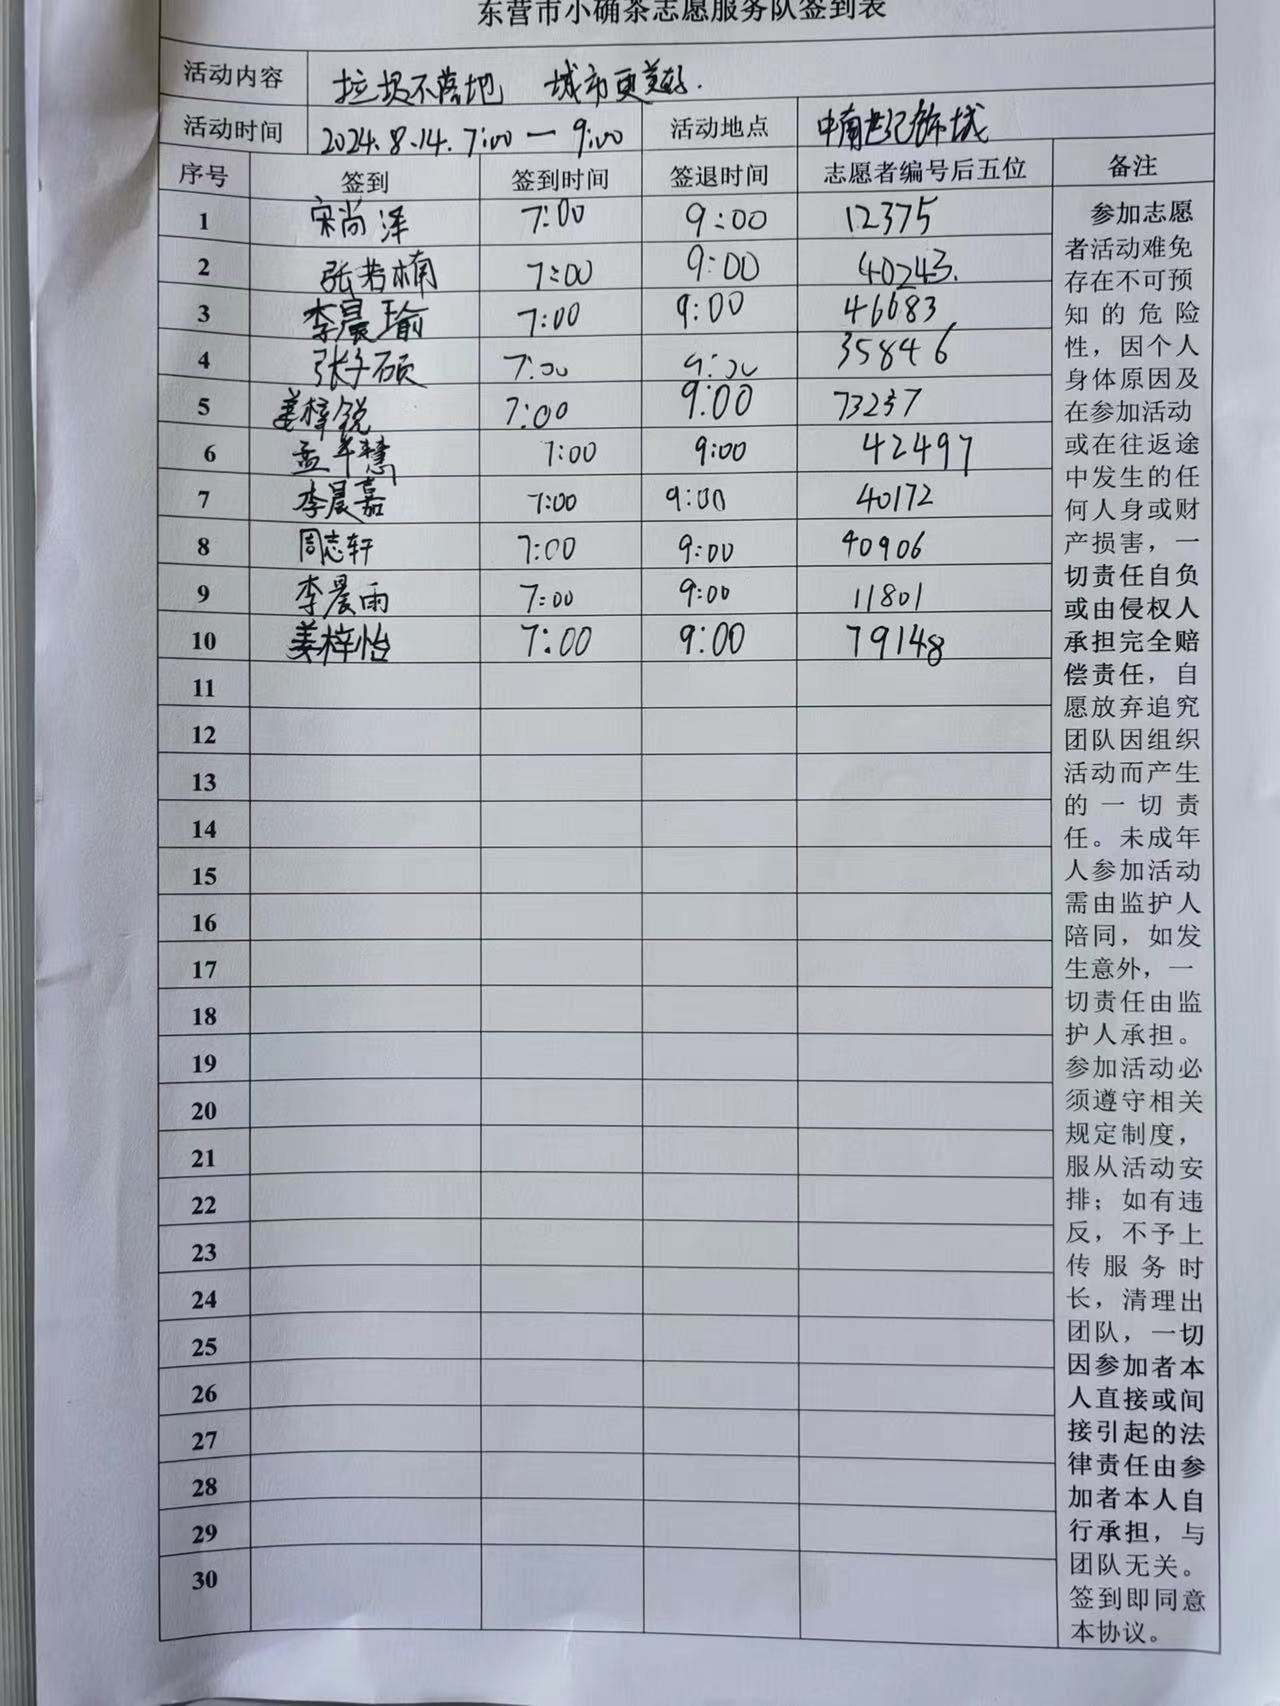 东营市小确茶志愿服务队签到表
活动内容 垃圾不落地 城市更美好.
活动时间 2024.8.14. 7:00一9:00 活动地点 中南世纪锦城
序号 签到 签到时间 签退时间 志愿者编号后五位 备注
1 宋尚泽 7:00 9:00 12375
2 张若楠 7:00 9:00 40243.
3 李晨瑜 7:00 9:00 46683
4 张子硕 7:00 9:00 35846
5 姜梓锐 7:00 9:00 73237
6 孟华慧 7:00 9:00 42497
7 李晨嘉 7:00 9:00 40172
8 周志轩 7:00 9:00 40906
9 李晨雨 7:00 9:00 11801
10 姜梓怡 7:00 9:00 79148
11
12
13
14
15
16
17
18
19
20
21
22
23
24
25
26
27
28
29
30
参加志愿
者活动难免
存在不可预
知的危险
性，因个人
身体原因及
在参加活动
或在往返途
中发生的任
何人身或财
产损害，一
切责任自负
或由侵权人
承担完全赔
偿责任，自
愿放弃追究
团队因组织
活动而产生
的一切责
任。未成年
人参加活动
需由监护人
陪同，如发
生意外，一
切责任由监
护人承担。
参加活动必
须遵守相关
规定制度，
服从活动安
排；如有违
反，不予上
传服务时
长，清理出
团队，一切
因参加者本
人直接或间
接引起的法
律责任由参
加者本人自
行承担，与
团队无关。
签到即同意
本协议。